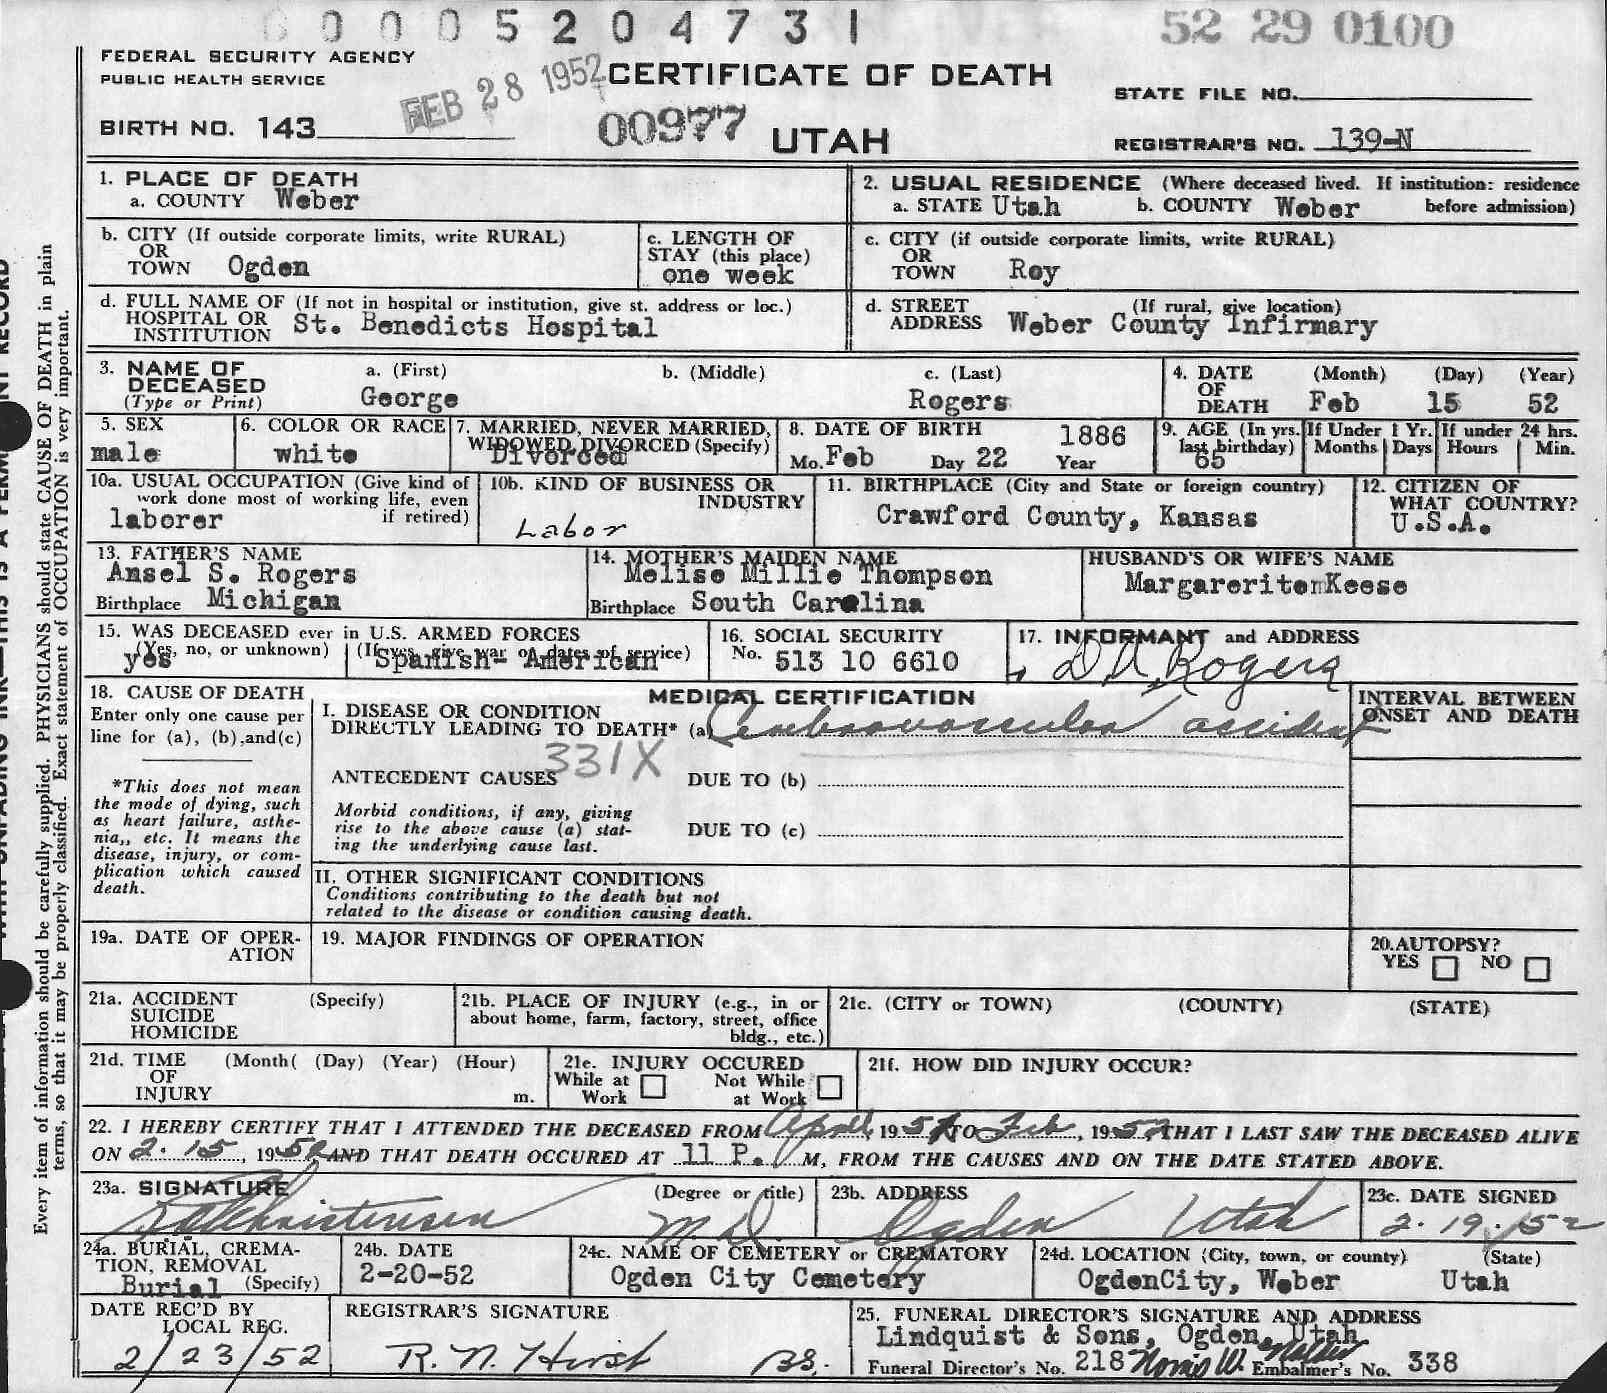 00005204731
52 29 0100
FEDERAL SECURITY AGENCY
PUBLIC HEALTH SERVICE
FEB 28 1952
CERTIFICATE OF DEATH
STATE FILE NO.
BIRTH NO. 143
00977
UTAH
REGISTRAR'S NO. 139-N
1. PLACE OF DEATH
a. COUNTY Weber
2. USUAL RESIDENCE (Where deceased lived. If institution: residence
a. STATE Utah b. COUNTY Weber before admission)
b. CITY (If outside corporate limits, write RURAL)
OR
TOWN Ogden
c. LENGTH OF
STAY (this place)
one week
c. CITY (if outside corporate limits, write RURAL)
OR
TOWN Roy
d. FULL NAME OF (If not in hospital or institution, give st. address or loc.)
HOSPITAL OR
INSTITUTION St. Benedicts Hospital
d. STREET (If rural, give location)
ADDRESS Weber County Infirmary
3. NAME OF
DECEASED
(Type or Print)
a. (First) b. (Middle) c. (Last)
George Rogers
4. DATE (Month) (Day) (Year)
OF
DEATH Feb 15 52
5. SEX
male
6. COLOR OR RACE
white
7. MARRIED, NEVER MARRIED,
WIDOWED, DIVORCED (Specify)
Divorced
8. DATE OF BIRTH 1886
Mo. Feb Day 22 Year
9. AGE (In yrs.
last birthday)
65
If Under 1 Yr.
Months Days
If under 24 hrs.
Hours Min.
10a. USUAL OCCUPATION (Give kind of
work done most of working life, even
if retired)
laborer
10b. KIND OF BUSINESS OR
INDUSTRY
Labor
11. BIRTHPLACE (City and State or foreign country)
Crawford County, Kansas
12. CITIZEN OF
WHAT COUNTRY?
U.S.A.
13. FATHER'S NAME
Ansel S. Rogers
Birthplace Michigan
14. MOTHER'S MAIDEN NAME
Melise Millie Thompson
Birthplace South Carolina
HUSBAND'S OR WIFE'S NAME
Keese
15. WAS DECEASED ever in U.S. ARMED FORCES
(Yes, no, or unknown) (If yes, give war or dates of service)
yes Spanish- American
16. SOCIAL SECURITY
No. 513 10 6610
17. INFORMANT and ADDRESS
D A Rogers
18. CAUSE OF DEATH
Enter only one cause per
line for (a), (b),and(c)
*This does not mean
the mode of dying, such
as heart failure, asthe-
nia,, etc. It means the
disease, injury, or com-
plication which caused
death.
MEDICAL CERTIFICATION
I. DISEASE OR CONDITION
DIRECTLY LEADING TO DEATH* (a) Cerebrovascular accident
331X
ANTECEDENT CAUSES DUE TO (b)
Morbid conditions, if any, giving
rise to the above cause (a) stat-
ing the underlying cause last.
DUE TO (c)
II. OTHER SIGNIFICANT CONDITIONS
Conditions contributing to the death but not
related to the disease or condition causing death.
INTERVAL BETWEEN
ONSET AND DEATH
19a. DATE OF OPER-
ATION
19. MAJOR FINDINGS OF OPERATION
20.AUTOPSY?
YES NO
21a. ACCIDENT (Specify)
SUICIDE
HOMICIDE
21b. PLACE OF INJURY (e.g., in or
about home, farm, factory, street, office
bldg., etc.)
21c. (CITY or TOWN) (COUNTY) (STATE)
21d. TIME (Month( (Day) (Year) (Hour)
OF
INJURY m.
21e. INJURY OCCURED
While at Not While
Work at Work
21f. HOW DID INJURY OCCUR?
22. I HEREBY CERTIFY THAT I ATTENDED THE DECEASED FROM April, 1951 TO Feb, 1952 THAT I LAST SAW THE DECEASED ALIVE
ON 2. 15, 1952 AND THAT DEATH OCCURED AT 11 P. M, FROM THE CAUSES AND ON THE DATE STATED ABOVE.
23a. SIGNATURE (Degree or title)
Christensen M.D.
23b. ADDRESS
Ogden Utah
23c. DATE SIGNED
2. 19. 52
24a. BURIAL, CREMA-
TION, REMOVAL
Burial (Specify)
24b. DATE
2-20-52
24c. NAME OF CEMETERY or CREMATORY
Ogden City Cemetery
24d. LOCATION (City, town, or county) (State)
OgdenCity, Weber Utah
DATE REC'D BY
LOCAL REG.
2/23/52
REGISTRAR'S SIGNATURE
R. N. Hirst BS.
25. FUNERAL DIRECTOR'S SIGNATURE AND ADDRESS
Lindquist & Sons, Ogden, Utah
Funeral Director's No. 218 Norris W. Embalmer's No. 338
Every item of information should be carefully supplied. PHYSICIANS should state CAUSE OF DEATH in plain
terms, so that it may be properly classified. Exact statement of OCCUPATION is very important.